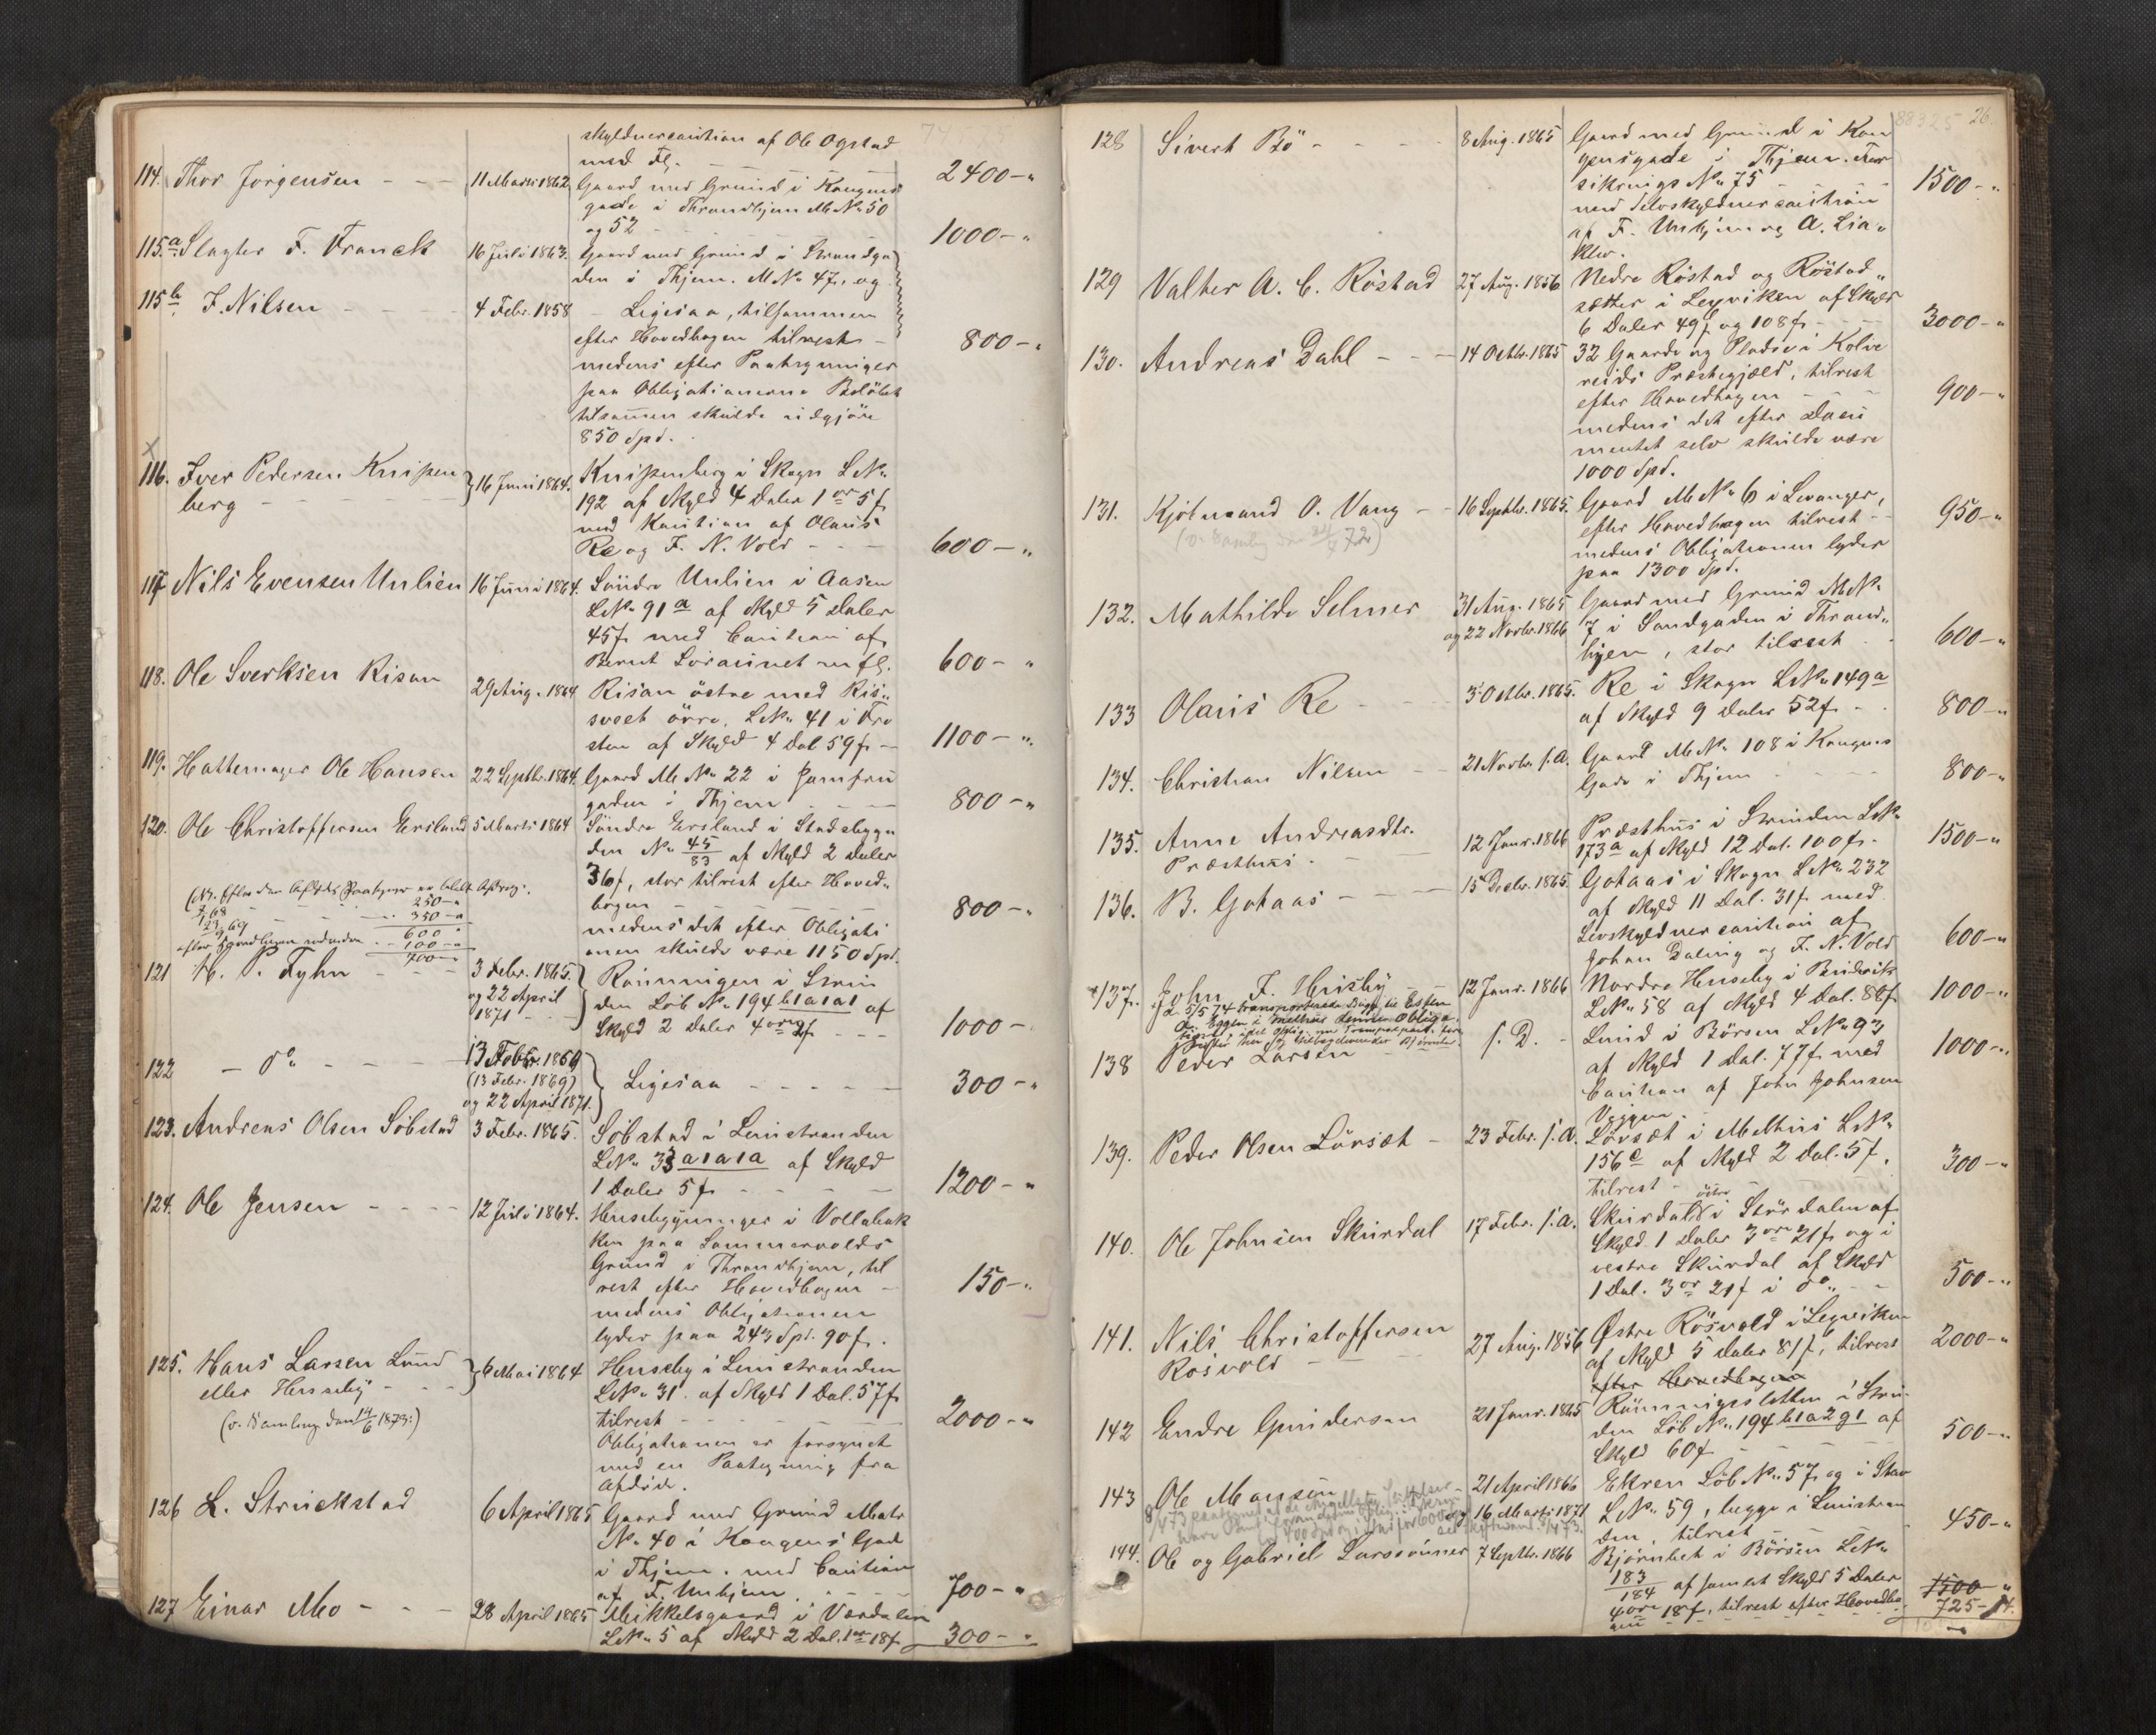 skyldnercaution af Ole Ogstad
med Fl. - - 2400-"
114. Thor Jörgensen - - - 11 Marts 1862 Gaard med Grund i Kongens
gade i Throndhjem M No 50
og 52 - - 1000-"
115.a. Slagter F. Franck 16 Juli 1863. Gaard med Grund i Strandga
den i Thjem. M No 47, og
115b. J. Nilsen - - - 4 Febr. 1858 - Ligesaa, tilsammen
efter Hovedbogen tilrest - 800-"
medens efter Paategninger
paa Obligationerne Beløbet
tilsammen skulde udgjöre
850 Spd.
X
116. Iver Pedersen Knipen
berg - - - 16 Juni 1864. Knipenberg i Skogn L No
192 af Skyld 4 Daler 1 or 5 f
med Kaution af Olaus
Re og F. N. Vold - - - 600-"
117 Nils Evensen Unlien 16 Juni 1864. Söndre Unlien i Aasen
L No 91a af Skyld 5 Daler
45 f. med Caution af
Bernt m fl. 600-"
118. Ole Sverksen Risan 29 Aug. 1864 Risan östre med Ris"
sveet övre, L No 41 i Fro
sten af Skyld 4 Dal 59 f - 1100-"
119. Hattemager Ole Hansen 22 Septbr. 1864. Gaard M No 22 i Jomfru
gaden i Thjem - - - 800-"
120. Ole Christoffersen Ersland 5 Marts 1864 Söndre Ersland i Stadsbygn
den No 45/83 af Skyld 2 Daler
36 f, stor tilrest efter Hoved"
bogen - - - 800-"
medens det efter Obligati
onen skulde være 1150 Spd.
250-"
350-"
600 "
100-"
700-"
121 H. P. Fyhn - - 3 Febr. 1865.
og 22 April
1871 - - Rønningen i Strin
den Löb No 194 b1a1a1 af
Skyld 2 Daler 4 ort 2 f - - 1000-
122 - do - - - 13 Febr. 1869
(13 Febr. 1869)
og 22 April 1871. Ligesaa - - - - 300-"
123. Andreas Olsen Söbstad 3 Febr. 1865. Söbstad i Leinstranden
L No 33 a1a1a af Skyld
1 Daler 5 f - - - 1200-"
124. Ole Jensen - - - 12 Juli 1864. Husebygninger i Vollabak
ken paa Sommervolds
Grund i Throndhjem, til
rest efter Hovedbogen - 150-"
medens Obligationen
lyder paa 243 Spd. 90 f.
125. Hans Larsen Lund
eller Huseby - - -
(v. Samling den 14/6 1873.) 6 Mai 1864 Huseby i Leinstranden
L No 31. af Skyld 1 Dal. 57 f
tilrest - - - 2000-"
Obligationen er forsynet
med en Paategning fra
Afdöde.
126 L. Strückstad 6 April 1865 Gaard med Grund Matr
No 40 i Kongens Gade
i Thjem. med Caution
af F. Unhjem - - - 700-"
127 Einar Mo - - - 28 April 1865 Mikkelsgaard i Værdalen
L No 5 af Skyld 2 Dal. 1 or 18 f 300-"
88325 26.
128 Sivert Bö - - - 8 Aug. 1865 Gaard med Grund i Kon
gensgade i Thjem. For
sikrings No 75 - - - 1500-"
med Selvskyldnercaution
af F. Unhjem og A. Lia"
klev.
129 Valter A. C. Röstad 27 Aug. 1856 Nedre Röstad og Röstad"
sætter i Lexviken af Skyld
6 Daler 49 f og 108 f - - - 3000-"
130. Andreas Dahl - - - 14 Octbr. 1865 32 Gaarde og Pladse i Kolve
reids Præstegjæld, tilrest
efter Hovedbogen - - - 900-"
medens det efter Docu
mentet selv skulde være
1000 Spd.
131. Kjöbmand O. Vang - - 16 Septbr. 1865. Gaard M No 6 i Levanger,
(v. Samling den 24/4 72) efter Hovedbogen tilrest - 950-"
medens Obligationen lyder
paa 1300 Spd.
132. Mathilde Selmer 31 Aug. 1865
og 22 Novbr. 1866 Gaard med Grund M No
7 i Sandgaden i Thrond"
hjem, stor tilrest - 600-"
133 Olaus Re - - 3 Octbr. 1865. Re i Skogn L No 149a
af Skyld 9 Daler 52 f - 800-"
134. Christian Nilsen - - 21 Novbr. s. A. Gaard M No 108 i Kongens
Gade i Thjem - - - 800-"
135. Anne Andreasdtr.
Præsthus - - 12 Janr. 1866 Præsthus i Strinden L No
173a af Skyld 12 Dal. 100 f. - 1500-"
136. B. Gotaas - - - 15 Decbr. 1865. Gotaas i Skogn L No 232
af Skyld 11 Dal. 31 f med
Selvskyldnercaution af
Johan Daling og F. N. Vold 600-"
137. John F. Huseby - - 12 Janr. 1866 Nordre Huseby i Budvik
L No 58 af Skyld 4 Dal. 88 f 1000-"
138 Peder Larsen - - s. D. - Lund i Börsen L No 93
af Skyld 1 Dal. 77 f. med 1000-"
Caution af John Johnsen
Viggen.
139. Peder Olsen Lörsæt - 23 Febr. s. A. Lörsæt i Melhus L No
156c af Skyld 2 Dal. 5 f,
tilrest - - - 300-"
140. Ole Johnsen Skurdal 17 Febr. s. A. Skurdal östre i Stördalen af
Skyld 1 Daler 3 ort 21 f og i
vestre Skurdal af Skyld
1 Dal. 3 or 21 f i do - - 500-"
141. Nils Christoffersen
Rosvold - - - 27 Aug. 1856 Østre Rösvold i Lexviken
af Skyld 5 Daler 81 f, tilrest 2000-"
efter Hovedbogen
142 Endre Gundersen 21 Janr. 1865 Rønningsletten i Strin
den Löb No 194 b1a2g1 af
Skyld 60 f - - - 500-"
143 Ole Monsen - 21 April 1866
og 16 Marts 1871 Ekren Löb No 57 og i Stav
L No 59, begge i Leinstran
den, tilrest - - - 450-"
144. Ole og Gabriel Larssönner 7 Septbr. 1866 Björnbet i Börsen L No
183/184 af samlet Skyld 5 Daler
4 ort 18 f, tilrest efter Hovedbo
gen - - - 1500-"
725-14.